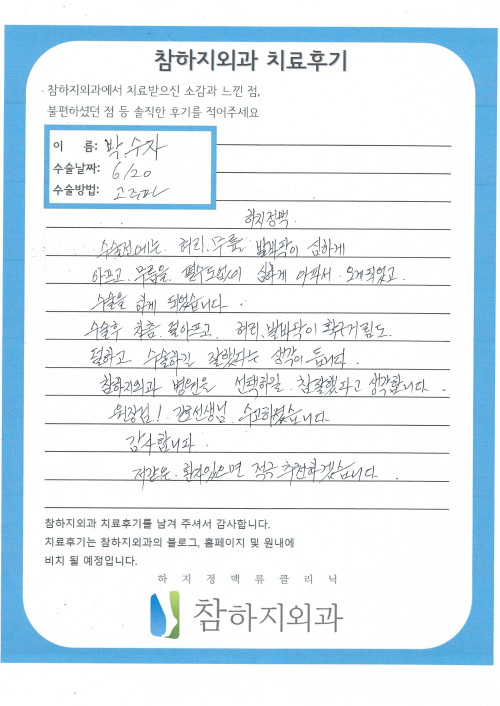 참하지외과 치료후기
참하지외과에서 치료받으신 소감과 느낀 점,
불편하셨던 점 등 솔직한 후기를 적어주세요
이 름: 박수자
수술날짜: 6/20
수술방법: 고주파
하지정맥
수술전에는 허리, 무릎, 발바닥이 심하게
아프고, 무릎을 펼수도없이 심하게 아파서 오게되었고
수술을 하게 되었습니다.
수술후 차츰 덜아프고, 허리, 발바닥이 화끈거림도
덜하고 수술하길 잘했다는 생각이 듭니다.
참하지외과 병원을 선택하길 참잘했다고 생각합니다.
원장님! 간호선생님 수고하셨습니다
감사합니다.
저같은 환자있으면 적극 추천하겠습니다.
참하지외과 치료후기를 남겨 주셔서 감사합니다.
치료후기는 참하지외과의 블로그, 홈페이지 및 원내에
비치 될 예정입니다.
하지정맥류클리닉
참하지외과